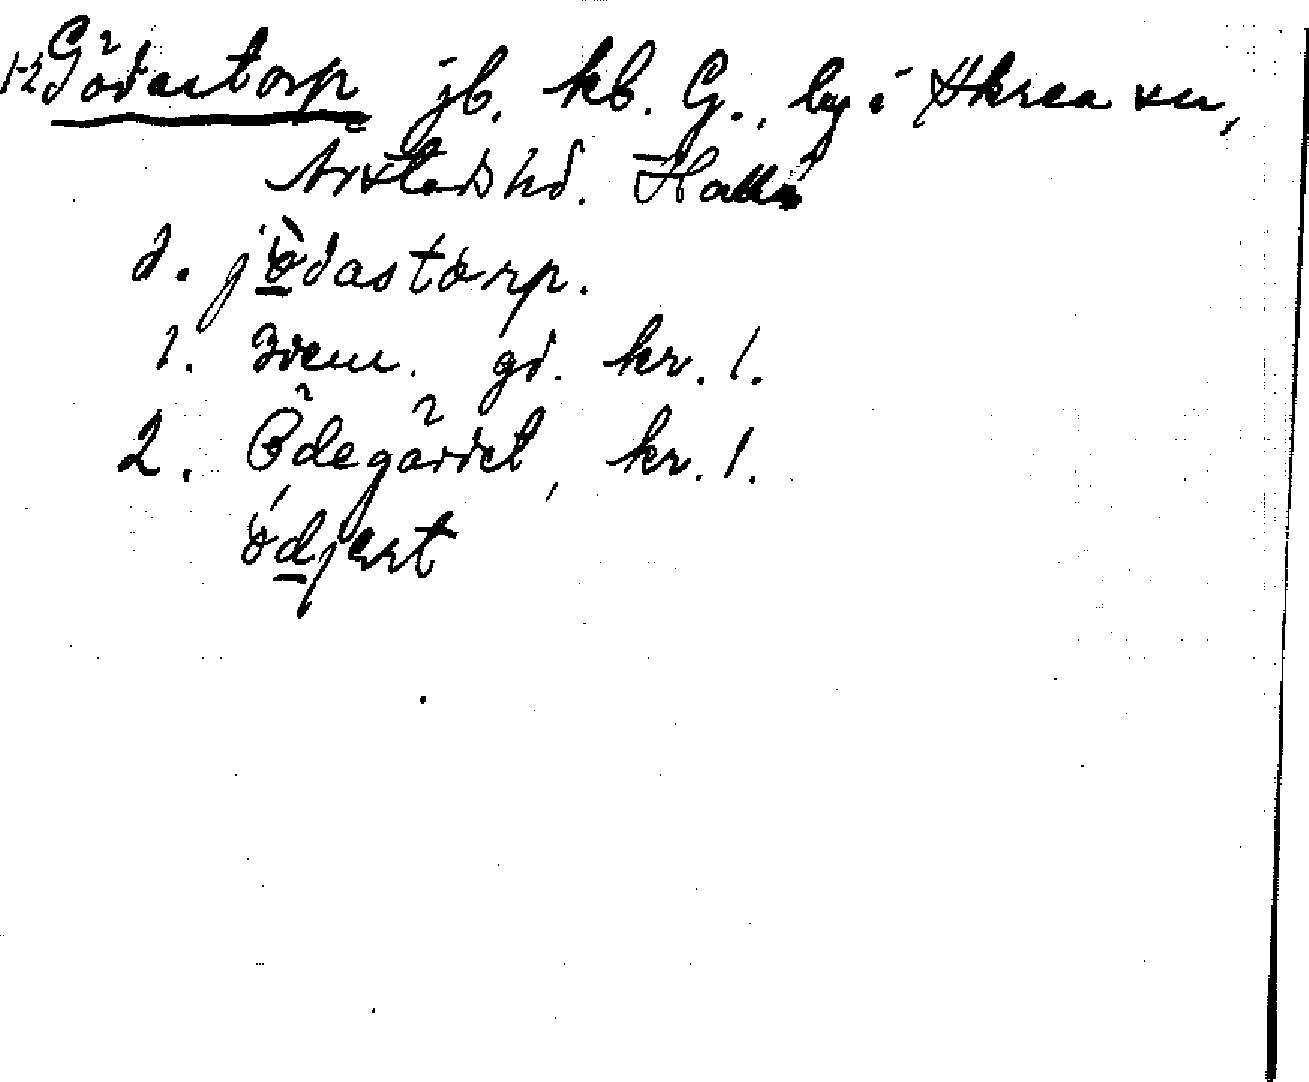 1-2 Gödastorp jb. kb. G., by i Skrea sn,
Årstads hd. Hall.
d. jödastorp.
1. Idem. gd. kr. 1.
2. Ödegärdet, kr. 1.
ödjert